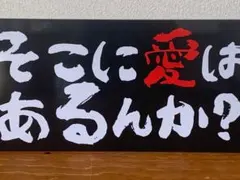 そこに愛は
あるんか?